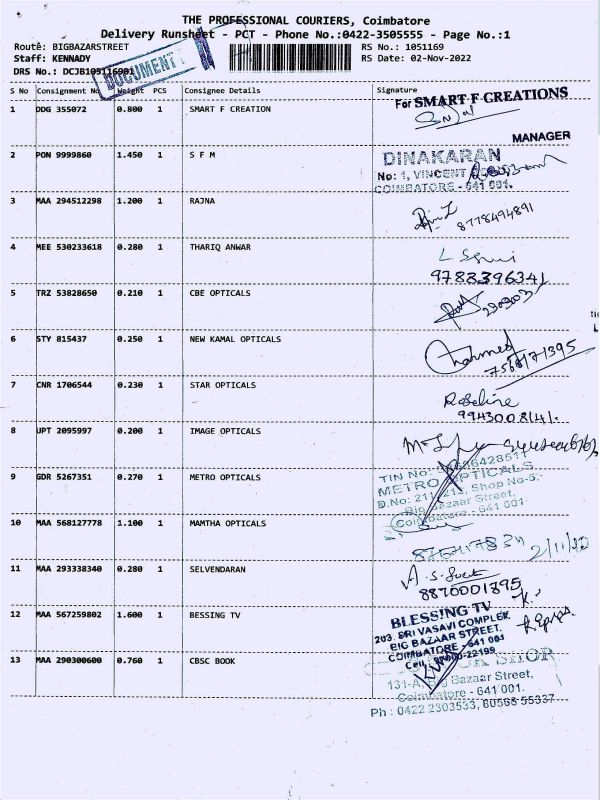 THE PROFESSIONAL COURIERS, Coimbatore
Delivery Runsheet - PCT - Phone No.:0422-3505555 - Page No.:1
Route: BIGBAZARSTREET RS No.: 1051169
Staff: KENNADY RS Date: 02-Nov-2022
DRS No.: DCJB105116901
DOCUMENT
S No Consignment No Weight PCS Consignee Details Signature
1 DDG 355072 0.800 1 SMART F CREATION
For SMART F CREATIONS
MANAGER
2 PON 9999860 1.450 1 S F M
DINAKARAN
No: 1, VINCENT
COIMBATORE - 641 001.
3 MAA 294512298 1.200 1 RAJNA
8778494891
4 MEE 530233618 0.280 1 THARIQ ANWAR
9788396341
5 TRZ 53828650 0.210 1 CBE OPTICALS
6 STY 815437 0.250 1 NEW KAMAL OPTICALS
7 CNR 1706544 0.230 1 STAR OPTICALS
9943008141.
8 UPT 2095997 0.200 1 IMAGE OPTICALS
9 GDR 5267351 0.270 1 METRO OPTICALS
TIN No:
METRO OPTICALS
D.No: 211, 213, Shop No-5.
Big Bazaar Street,
Coimbatore - 641 001
10 MAA 568127778 1.100 1 MAMTHA OPTICALS
2/11/22
11 MAA 293338340 0.280 1 SELVENDARAN
8870001895
12 MAA 567259802 1.600 1 BESSING TV
BLESSING TV
203, SRI VASAVI COMPLEX
BIG BAZAAR STREET.
COIMBATORE - 641 001
13 MAA 290300600 0.760 1 CBSC BOOK
SHOP
Bazaar Street,
Coimbatore - 641 001.
Ph : 0422 2303533, 80568 55337